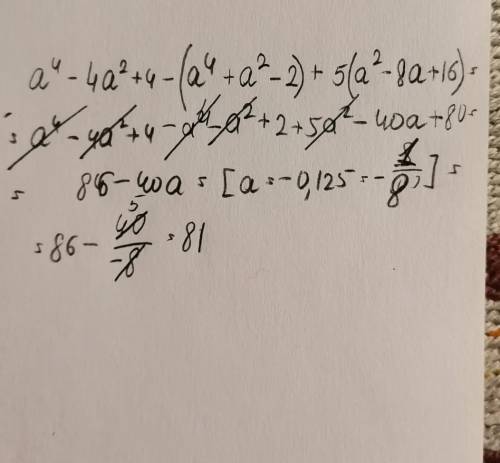 a⁴ - 4a² + 4 - (a⁴ + a² - 2) + 5(a² - 8a + 16) =
= a⁴ - 4a² + 4 - a⁴ - a² + 2 + 5a² - 40a + 80 =
= 86 - 40a = [a = -0,125 = -1/8] =
= 86 - 40/-8 = 81
5